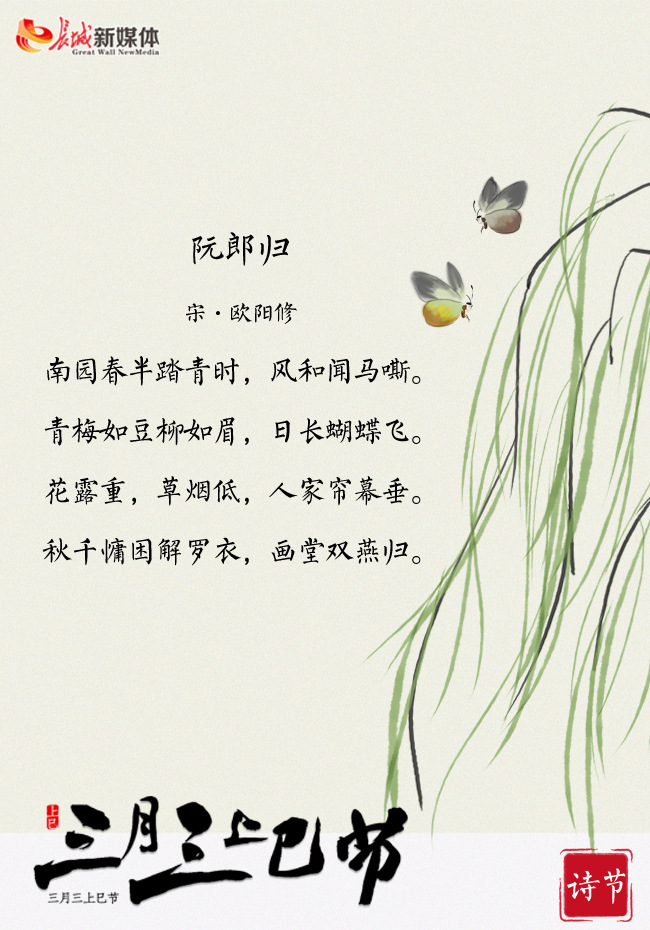 长城新媒体
Great Wall NewMedia
阮郎归
宋·欧阳修
南园春半踏青时，风和闻马嘶。
青梅如豆柳如眉，日长蝴蝶飞。
花露重，草烟低，人家帘幕垂。
秋千慵困解罗衣，画堂双燕归。
上巳
三月三上巳节
三月三上巳节
诗节